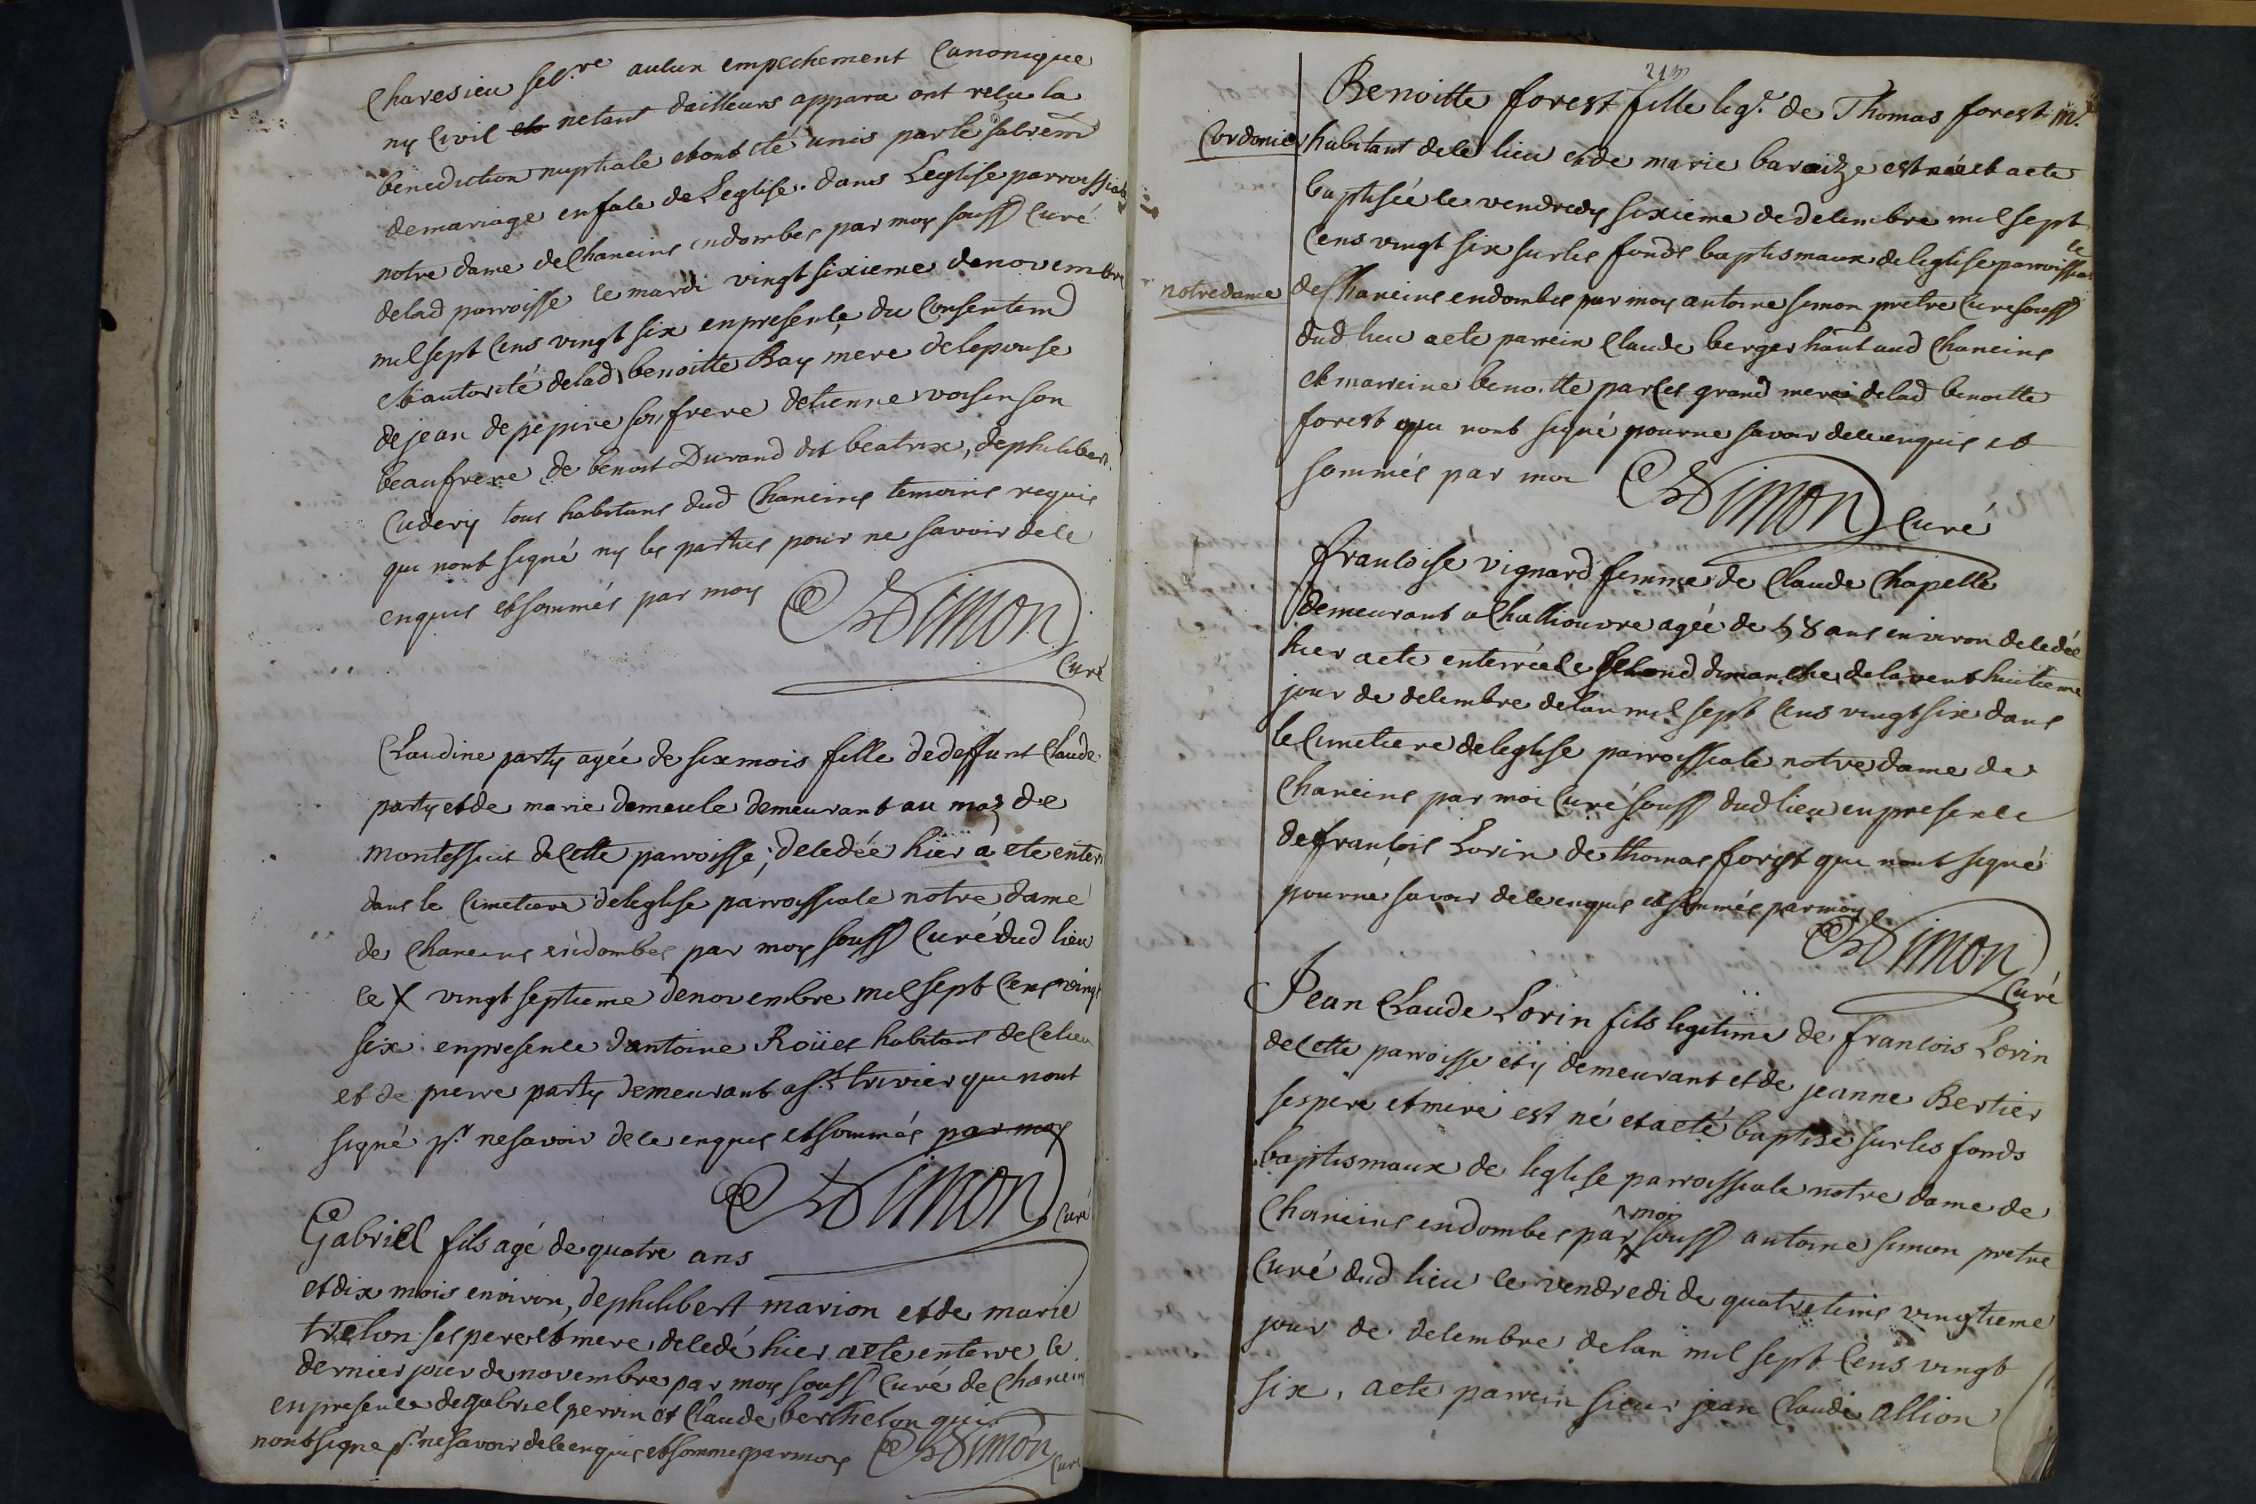 Charesieu secre aulun empechement Canonique
ny Civil netant dailleurs apparu ont reçu la
benediction nuptiale et ont eté unis par le sacrem
de mariage en fale de Leglise. dans Leglise parroissiale
notre dame de Chaneins en dombes par moy souss Curé
de lad parroisse le mardi vingt sixieme de novembre
mil sept Cens vingt six en presenle du Consentem
et autorité de lad benoitte Bay mere de lepouse
de jean de pepine son frere detienne voisin son
beaufrere de benoit Durand dit beatrix, de philibert
Cudery tous habitans dud Chaneins temoins requis
qui nont signé ny les parties pour ne savoir de le
enquis et sommés par moy
Simon
Curé
Claudine party agée de six mois fille de deffunt Claude
party et de marie demeule demeurant au mas de
montessuit de Cette parroisse; deledée hier a ete enter
dans le Cimetiere de leglise parroissiale notre dame
de Chaneins en dombes par moy souss Curé dud lieu
le vingt septieme de novembre mil sept Cens vingt
six en presenle dantoine Roüet habitant de Le lieu
et de pierre party demeurant a st trivier qui nont
signé pr ne savoir de le enquis et sommés par moy
Simon Curé
Gabriel fils agé de quatre ans
et dix mois environ, de philibert marion et de marie
trelon ses pere et mere deledé hier a ete enterre le
dernier jour de novembre par moy souss Curé de Chanein
en presenle de gabriel perrin et Claude berthelon qui
nont signe pr ne savoir de le enquis et sommes par moy Simon Curé
Benoitte forest fille leg.e de Thomas forest m.e
Cordonier habitant de le lieu et de marie baraize est née et a ete
baptisée le vendredy sixieme de delembre mil sept
Cens vingt six sur les fonds baptismaux de leglise parroissiale
notre dame de Chaneins en dombes par moy antoine simon pretre Curé souss
dud lieu a ete parrein Claude berger habt aud Chaneins
et marreine benoitte parles grand mere de lad benoitte
forest qui nont signé pour ne savoir de le enquis et
sommés par moi Simon Curé
francoise vignard femme de Claude Chapelle
demeurant a Challiouvre agée de 48 ans environ deledée
hier a ete enterrée le selond dimanche de lavent huitieme
jour de delembre de lan mil sept Cens vingt six dans
le Cimetiere de leglise parroissiale notre dame de
Chaneins par moi Curé souss dud lieu en presenle
de francois Lorin de thomas forest qui nont signé
pour ne savoir de le enquis et sommés par moy
Simon Curé
Jean Claude Lorin fils legitime de francois Lorin
de Cette parroisse et y demeurant et de jeanne Bertier
ses pere et mere est né et a eté baptisé sur les fonds
baptismaux de leglise parroissiale notre dame de
Chaneins en dombes par moy souss antoine simon pretre
Curé dud lieu le vendredi de quatre tems vingtieme
jour de delembre de lan mil sept Cens vingt
six, a ete parrein sieur jean Claude allion